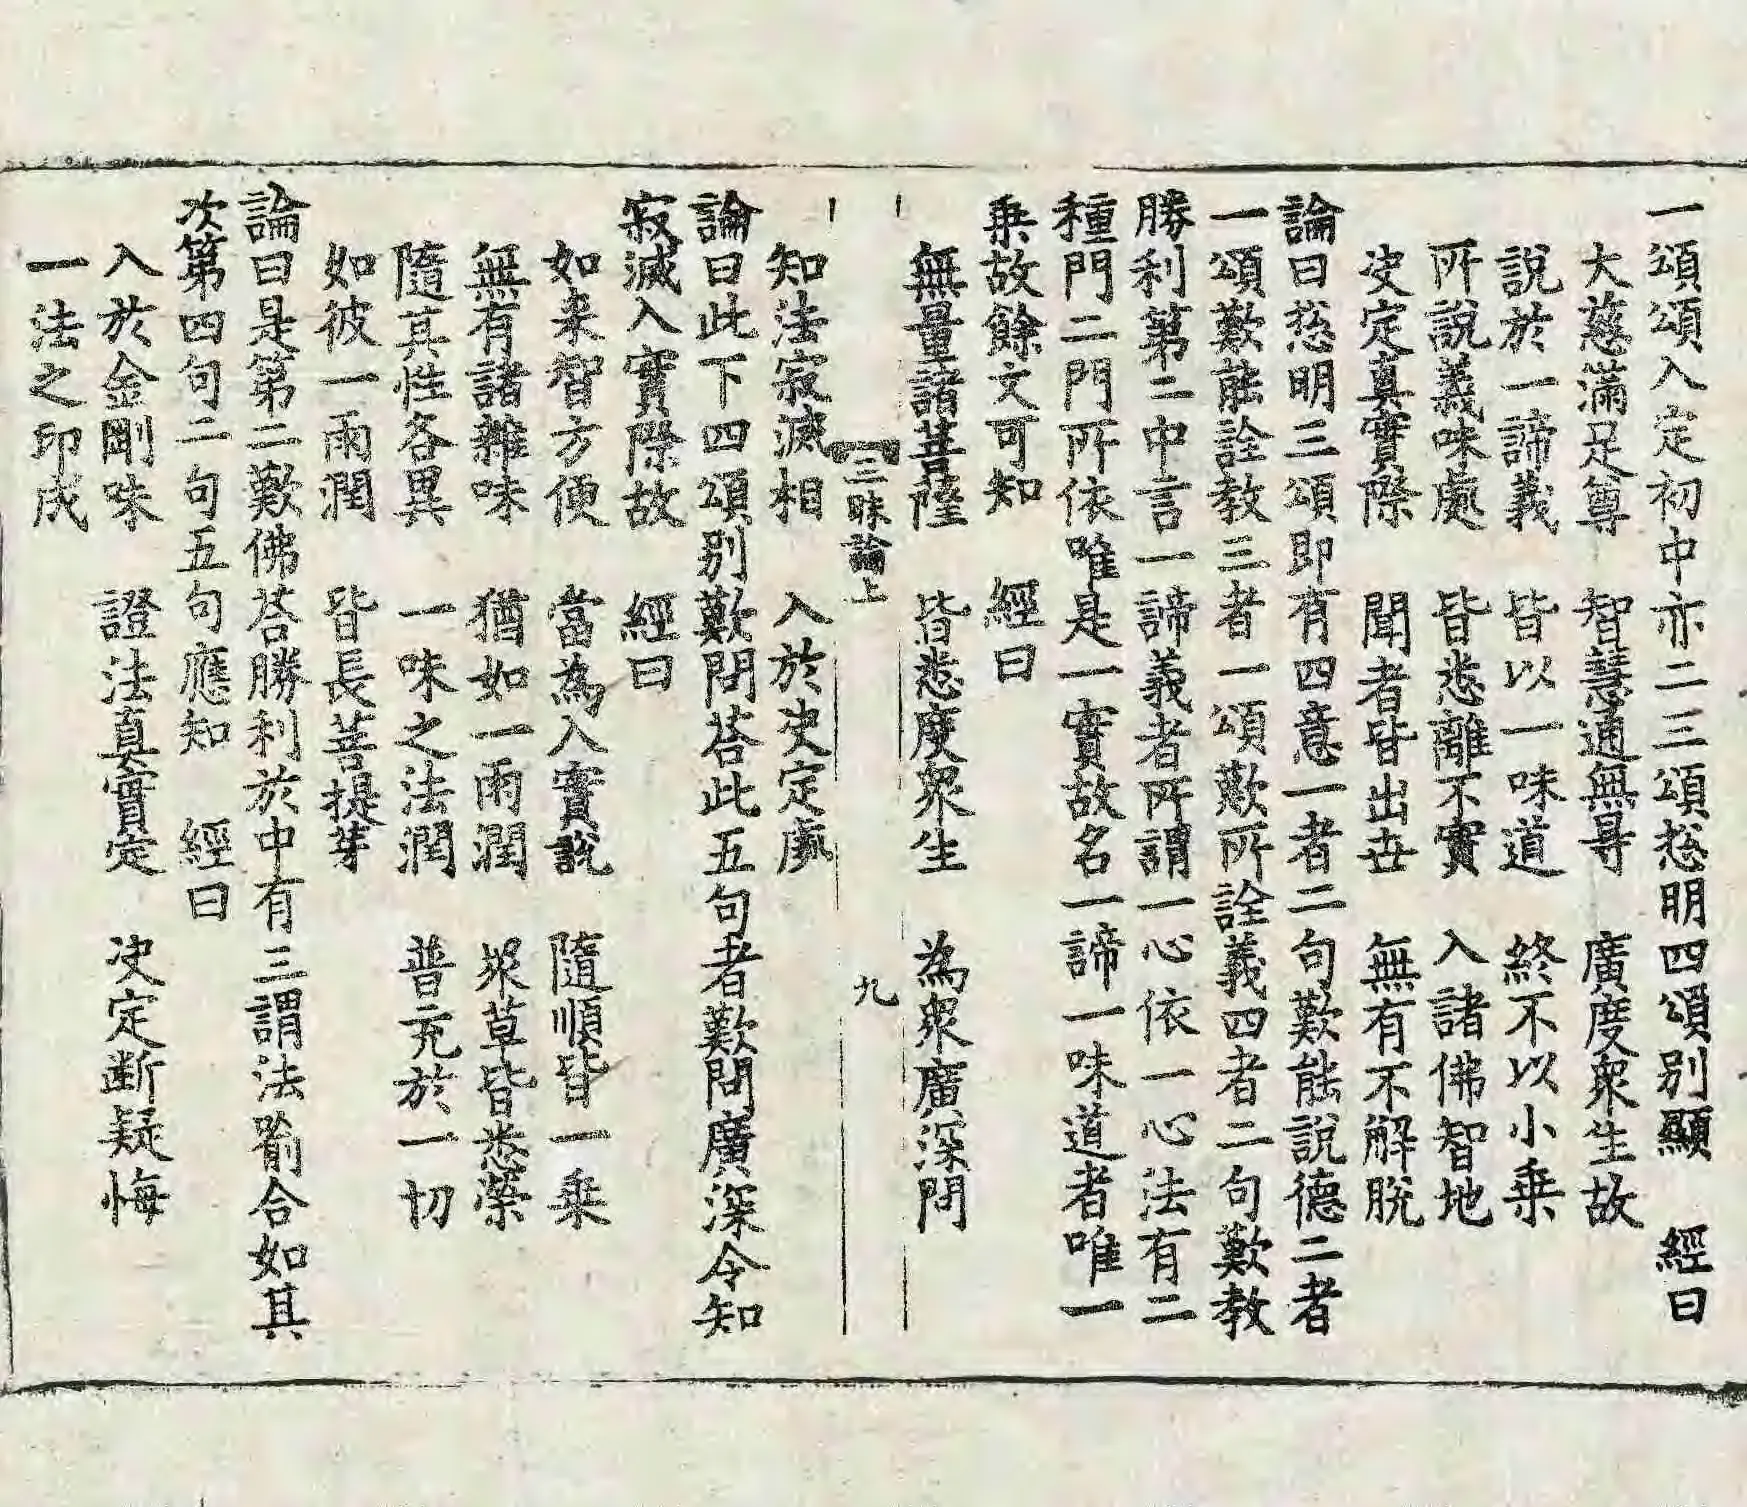 一頌頌入定初中亦二三頌㧾明四頌別顯　經曰
大慈滿足尊　智慧通無㝵　廣度衆生故
說於一諦義　皆以一味道　終不以小乗
所說義味處　皆悉離不實　入諸佛智地
决定真實際　聞者皆出世　無有不解脫
論曰㧾明三頌即有四意一者二句歎能說德二者
一頌歎能詮教三者一頌歎所詮義四者二句歎教
勝利第二中言一諦義者所謂一心依一心法有二
種門二門所依唯是一實故名一諦一味道者唯一
乗故餘文可知　經曰
無量諸菩薩　皆悉度衆生　為衆廣深問
三昧論上　九
知法寂滅相　入於决定處
論曰此下四頌別歎問荅此五句者歎問廣深令知
寂滅入實際故　經曰
如来智方便　當為入實說　隨順皆一乗
無有諸雜味　猶如一雨潤　衆草皆悉榮
隨其性各異　一味之法潤　普充於一切
如彼一雨潤　皆長菩提芽
論曰是第二歎佛荅勝利於中有三謂法喻合如其
次第四句二句五句應知　經曰
入於金剛味　證法真實定　决定断疑悔
一法之印成